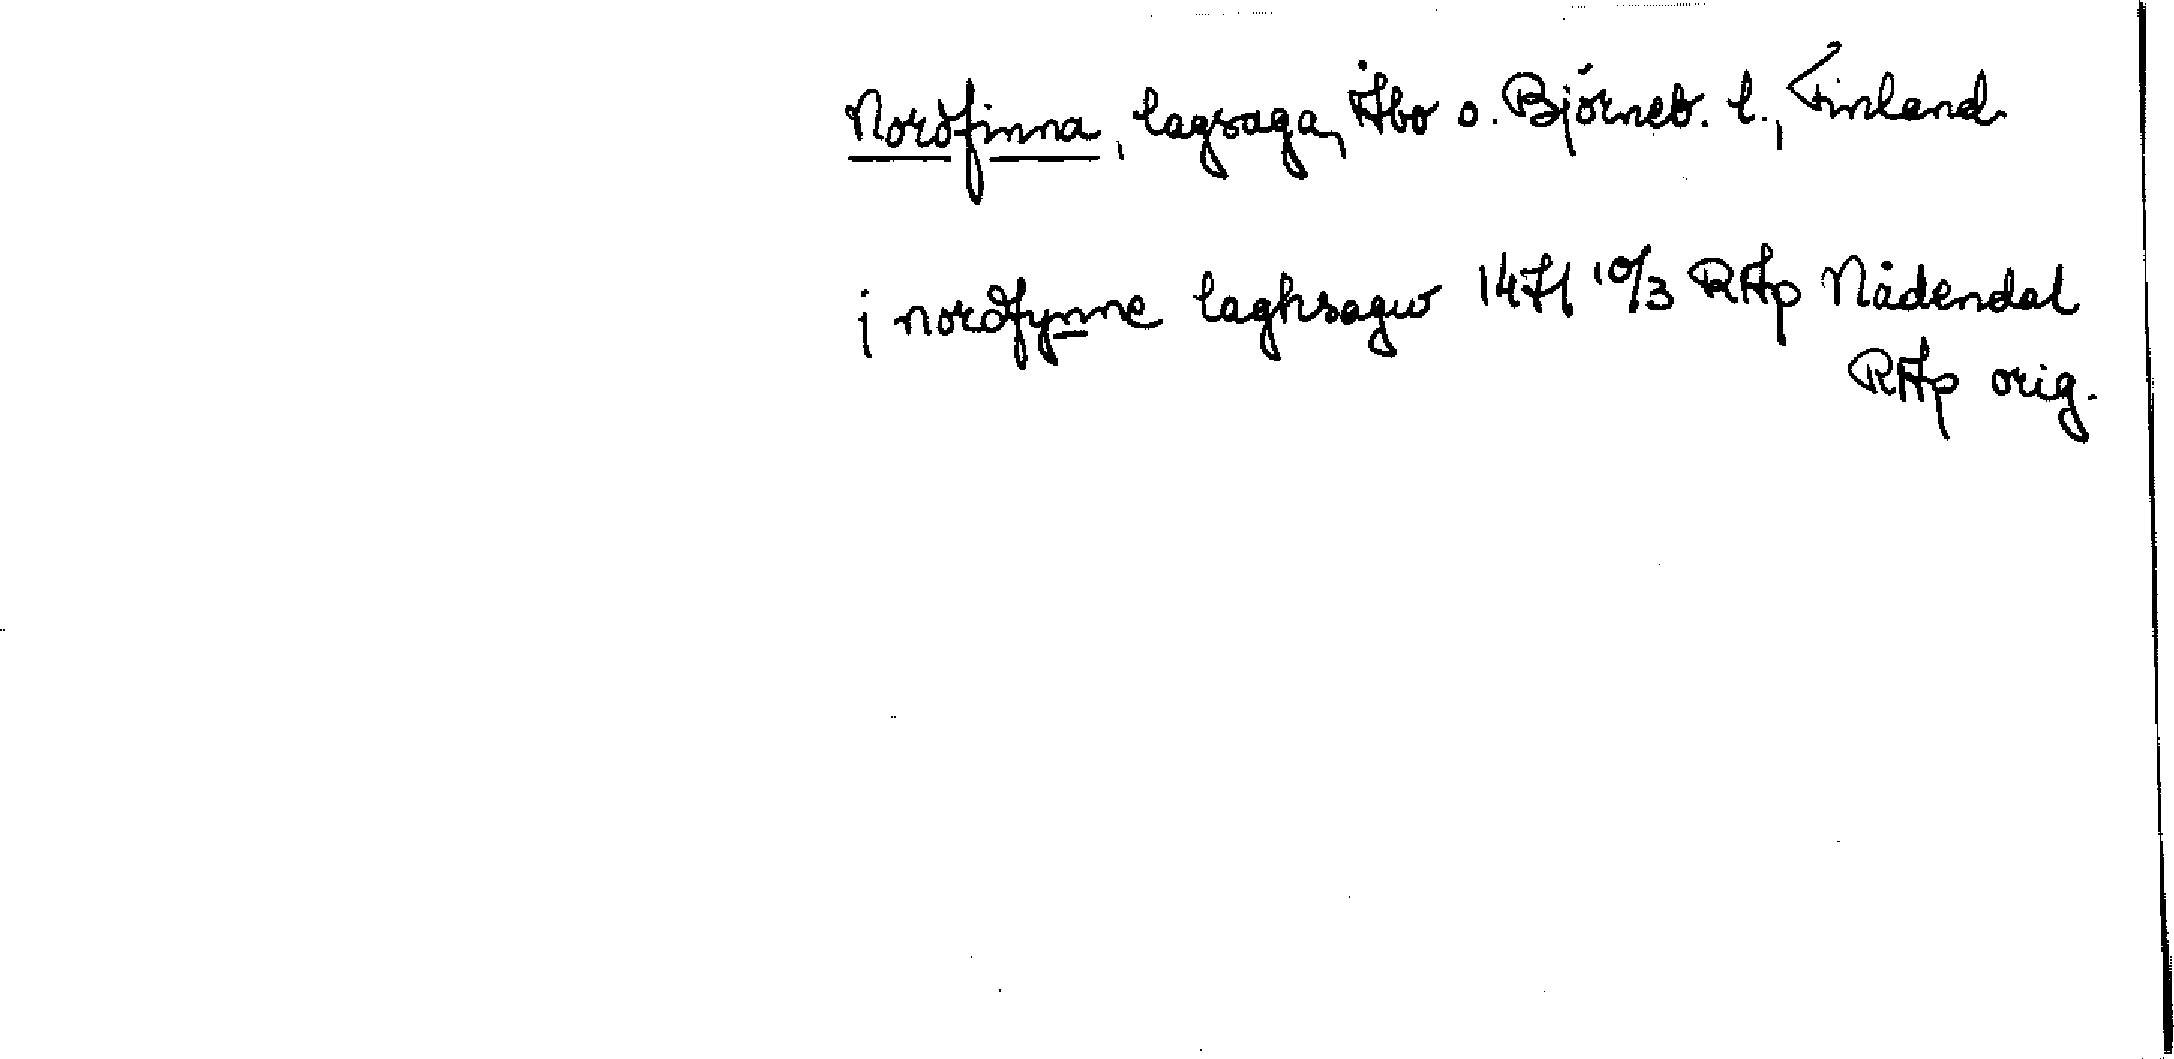 Nordfinna, lagsaga, Åbo o. Björneb. l., Finland
j nordfynne laghsagw 1471 10/3 RAp Nådendal
RAp orig.